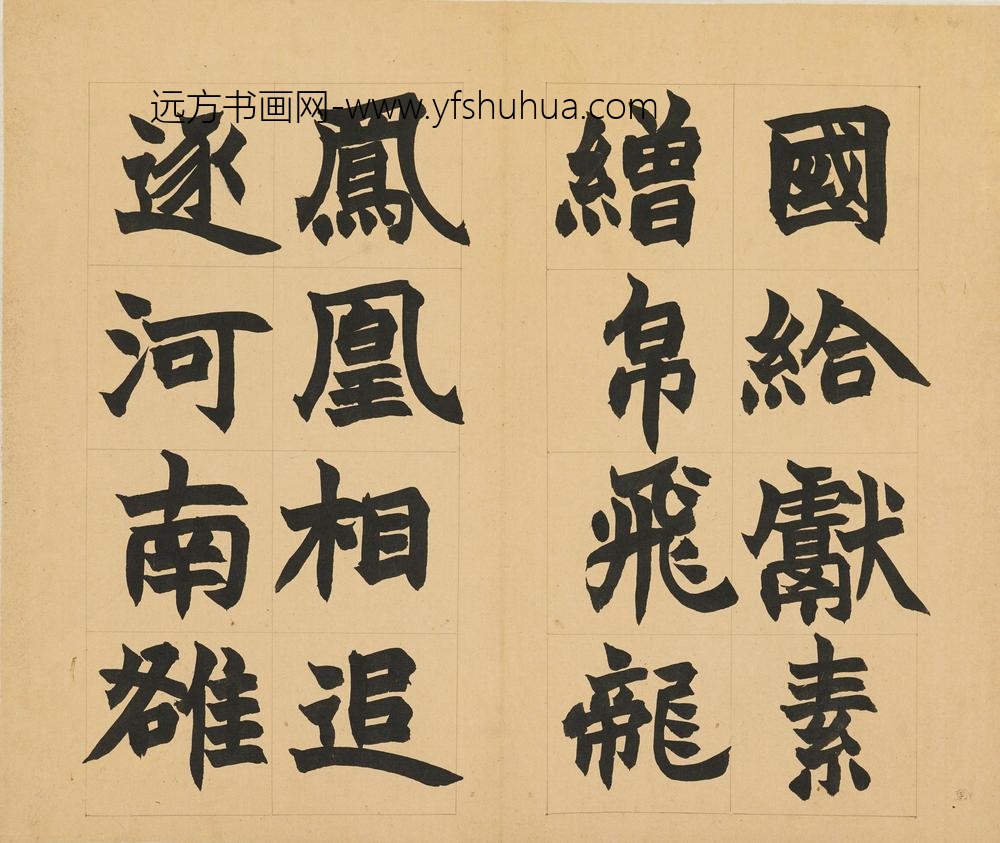 远方书画网-www.yfshuhua.com
國給獻素
繒帛飛龍
鳳凰相追
逐河南雒